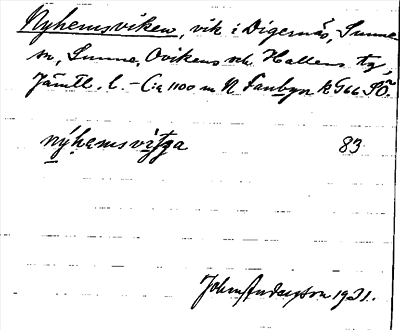 Nyhemsviken, vik i Digernäs, Sunne
sn, Sunne, Ovikens och Hallens tg,
Jämtl. l. – C:a 1100 m N Fanbyn k G66 SÖ.
nýhemsvitʒa 83
John Andersson 1931.